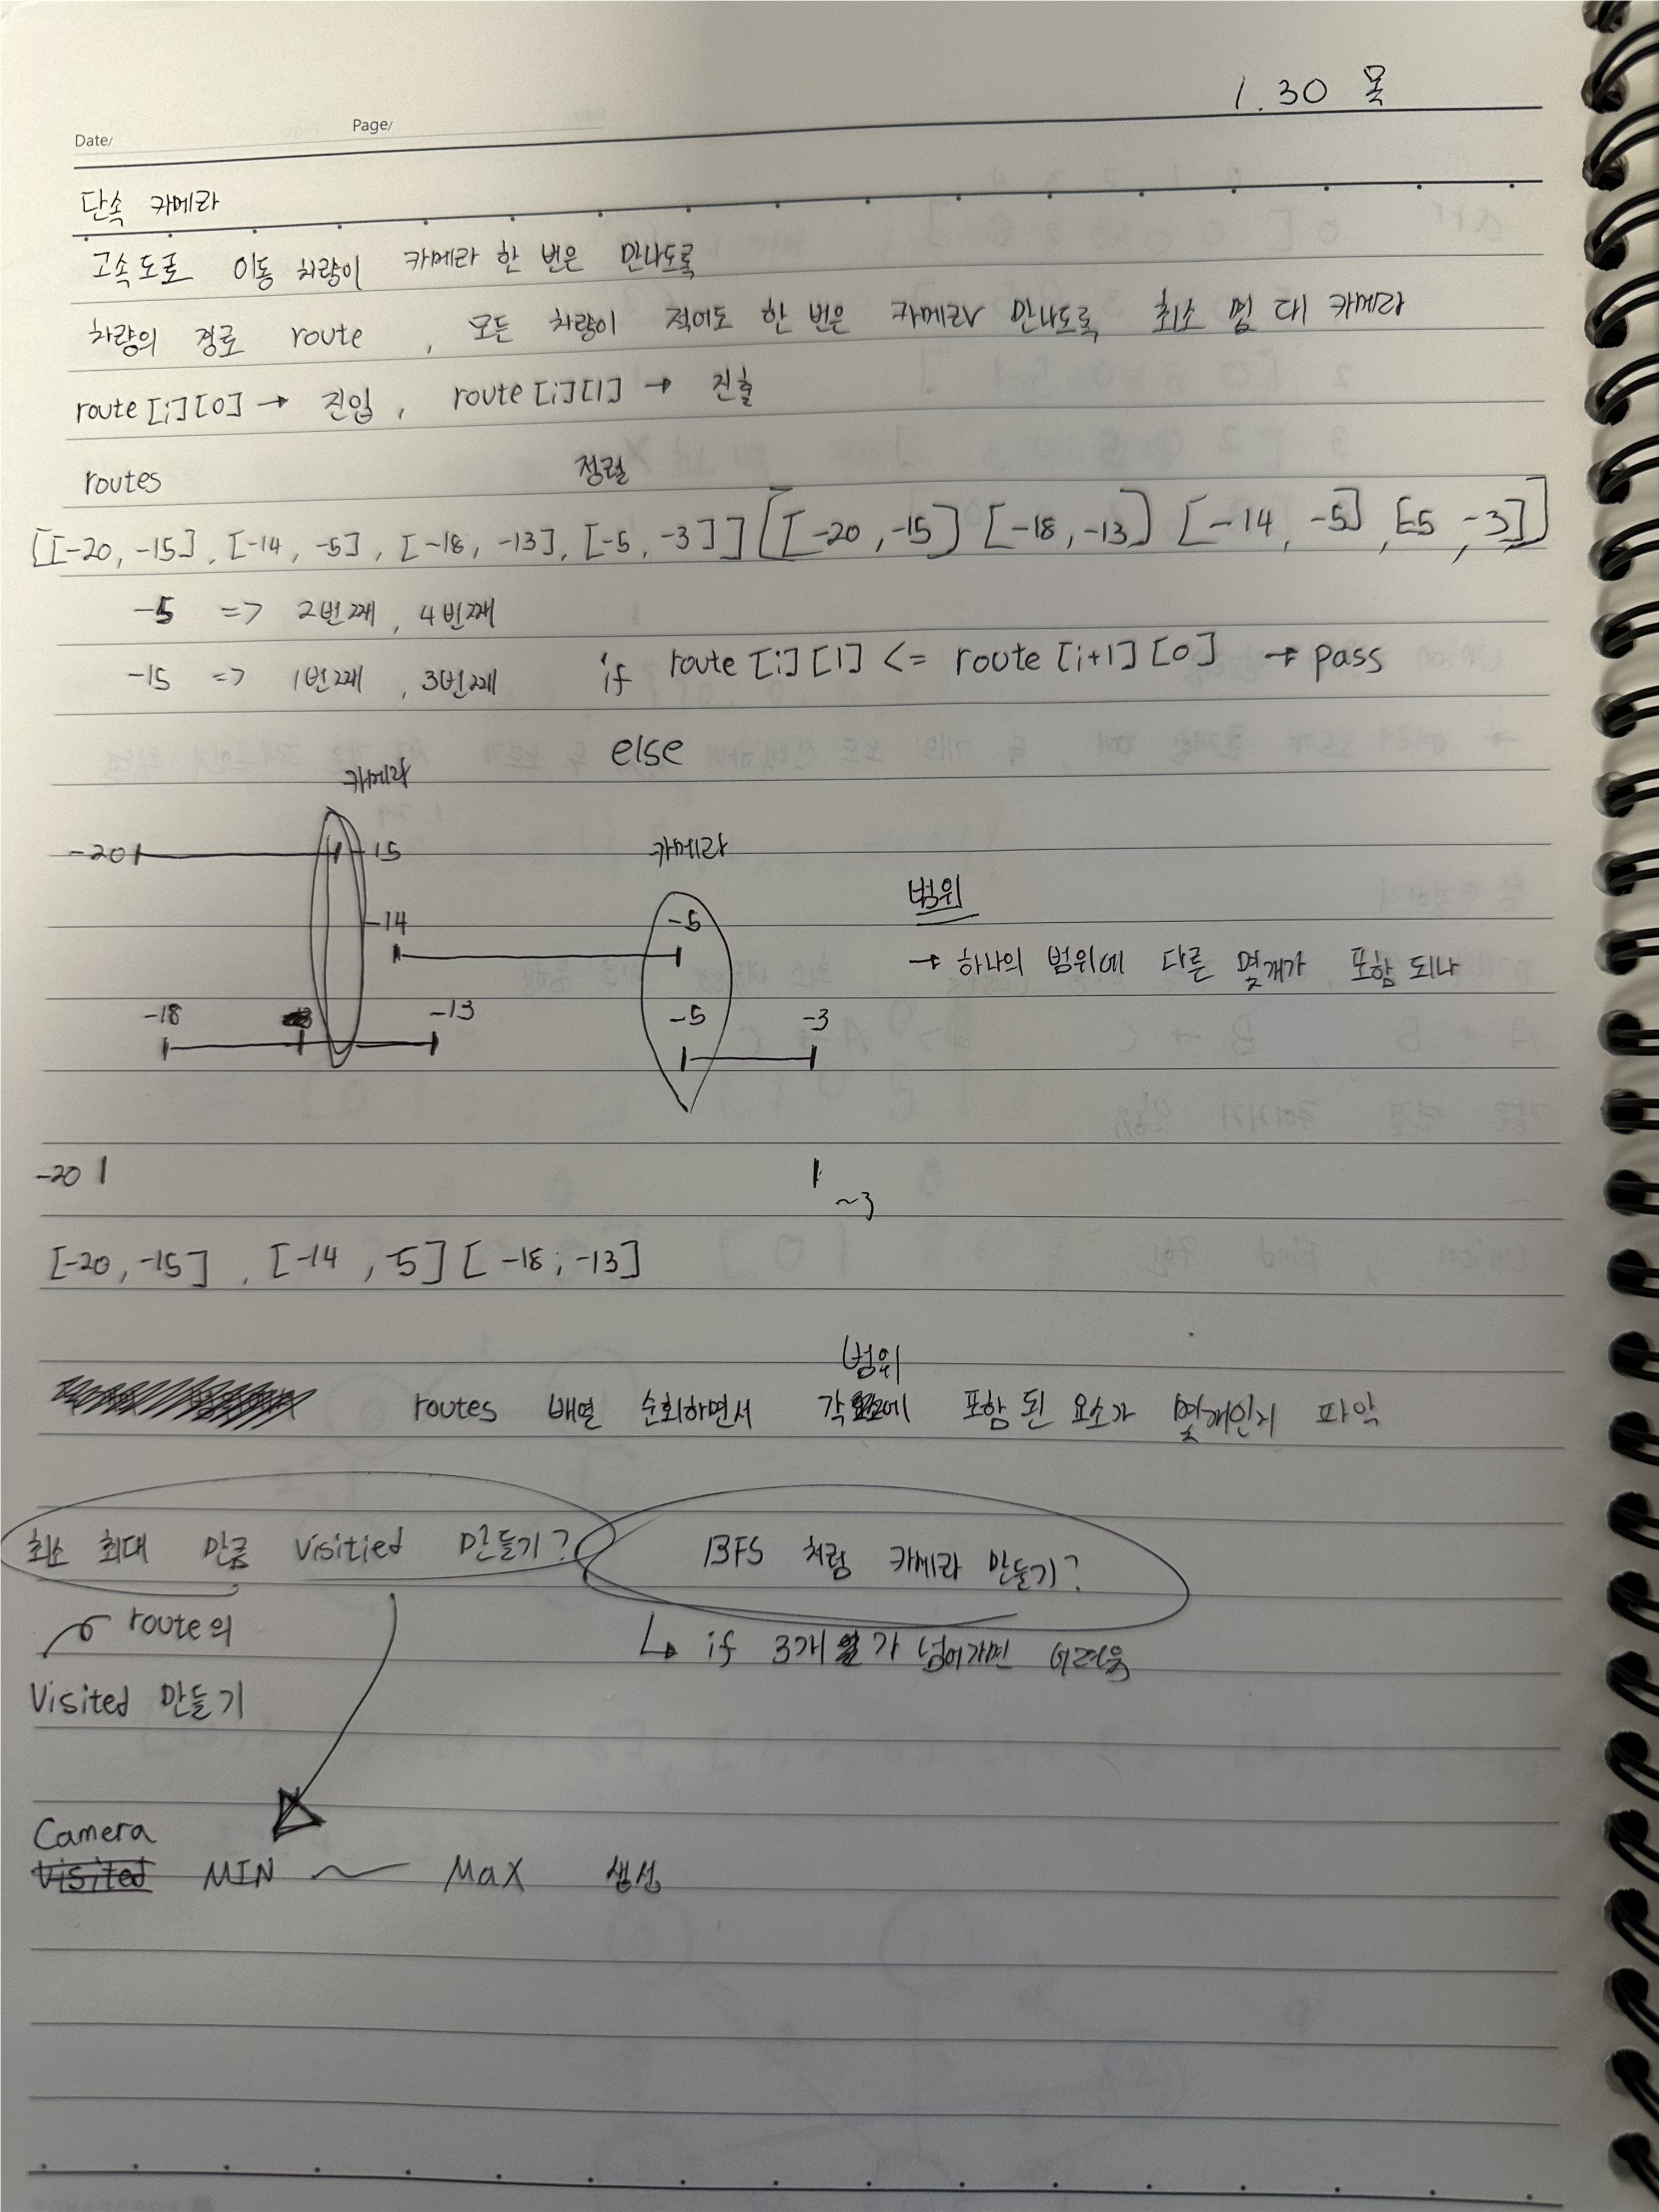 1.30 목
Date/ Page/
단속 카메라
고속도로 이동 차량이 카메라 한 번은 만나도록
차량의 경로 route , 모든 차량이 적어도 한 번은 카메라 만나도록 최소 몇 대 카메라
route[i][0] → 진입 , route[i][1] → 진출
routes 정렬
[[-20, -15], [-14, -5], [-18, -13], [-5, -3]] [[-20, -15] [-18, -13] [-14, -5], [-5, -3]]
-5 => 2번째, 4번째
-15 => 1번째, 3번째 if route[i][1] <= route[i+1][0] → pass
else
카메라
-20 -15 카메라
-14 -5 범위
→ 하나의 범위에 다른 몇개가 포함 되나
-18 -13 -5 -3
-20
~3
[-20, -15], [-14, -5] [-18, -13]
범위
routes 배열 순회하면서 각 에 포함된 요소가 몇개인지 파악
최소 최대 만큼 visitied 만들기? BFS 처럼 카메라 만들기?
route의 ↳ if 3개 가 넘어가면 어려움
Visited 만들기
Camera
Visited MIN ~ Max 생성